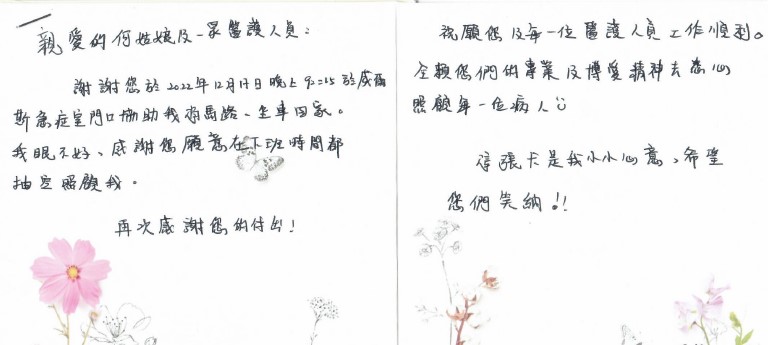 親愛的何姑娘及一眾醫護人員：
謝謝您於2022年12月17日晚上9:15於威爾
斯急症室門口協助我過馬路、坐車回家。
我眼不好、感謝您願意在下班時間都
抽空照顧我。
再次感謝您的付出！
祝願您及每一位醫護人員工作順利。
全賴您們的專業及博愛精神去悉心
照顧每一位病人
這張卡是我小小心意、希望
您們笑納!!